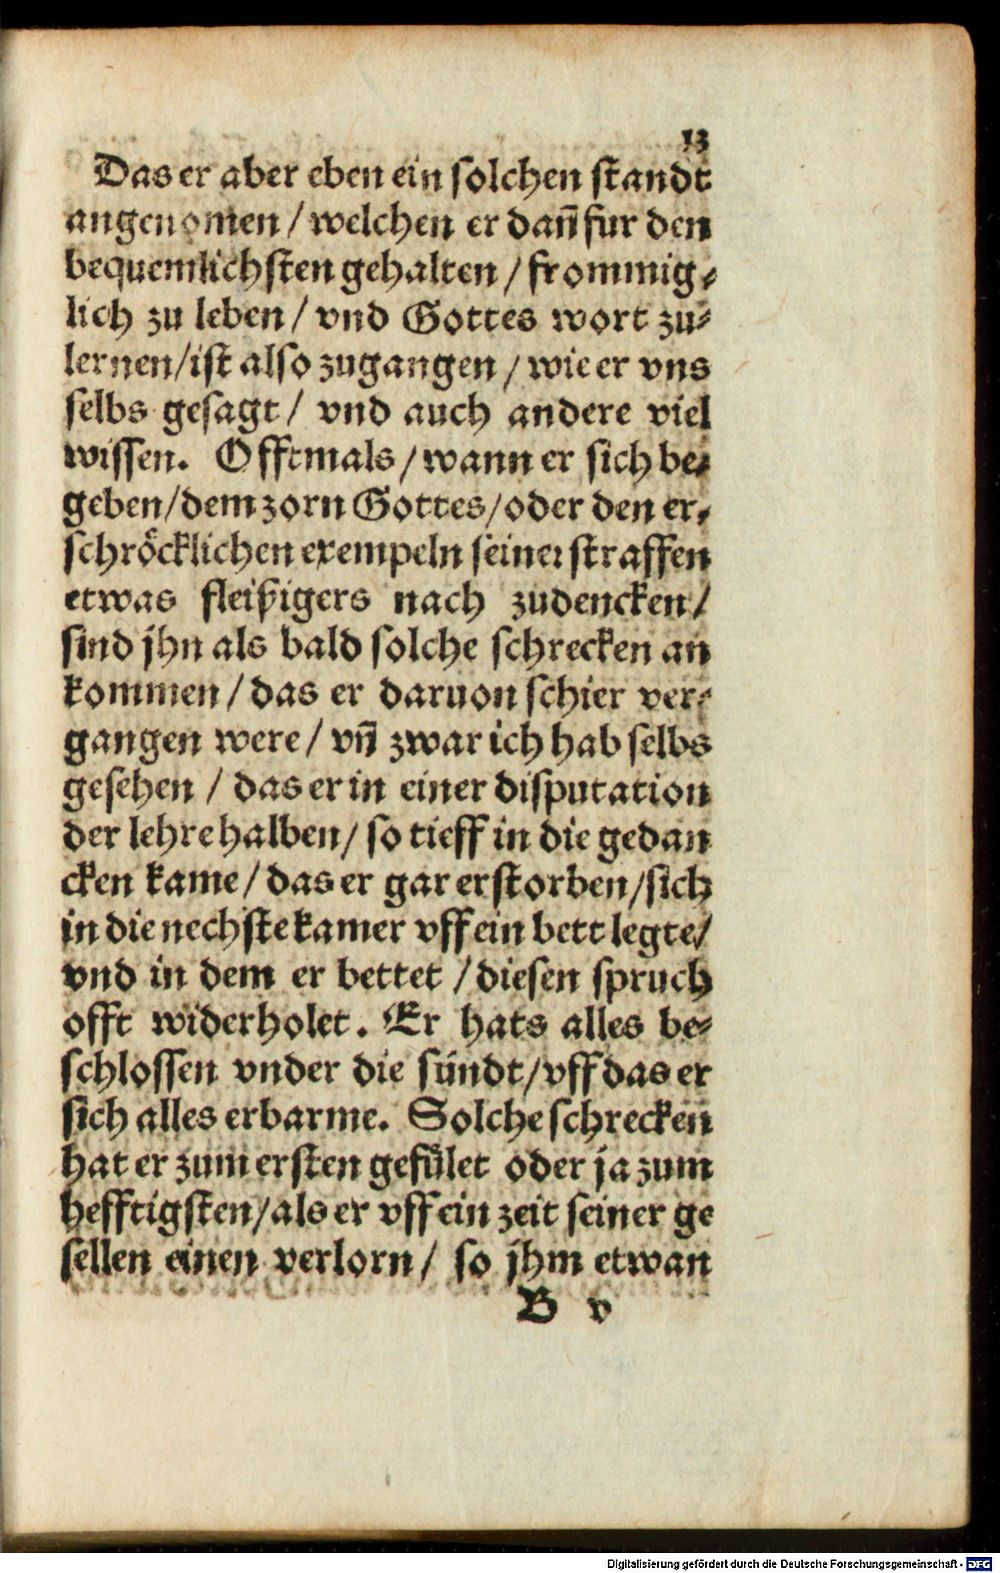 13
Das er aber eben ein solchen standt
angenomen / welchen er dañ fur den
bequemlichsten gehalten / frommig⸗
lich zu leben / vnd Gottes wort zu⸗
lernen / ist also zugangen / wie er vns
selbs gesagt / vnd auch andere viel
wissen. Offtmals / wann er sich be⸗
geben / dem zorn Gottes / oder den er⸗
schröcklichen exempeln seiner straffen
etwas fleißigers nach zudencken /
sind jhn als bald solche schrecken an
kommen / das er daruon schier ver⸗
gangen were / vñ zwar ich hab selbs
gesehen / das er in einer disputation
der lehre halben / so tieff in die gedan
cken kame / das er gar erstorben / sich
in die nechste kamer vff ein bett legte /
vnd in dem er bettet / diesen spruch
offt widerholet. Er hats alles be⸗
schlossen vnder die sündt / vff das er
sich alles erbarme. Solche schrecken
hat er zum ersten gefület oder ja zum
hefftigsten / als er vff ein zeit seiner ge
sellen einen verlorn / so jhm etwan
B v
Digitalisierung gefördert durch die Deutsche Forschungsgemeinschaft - DFG